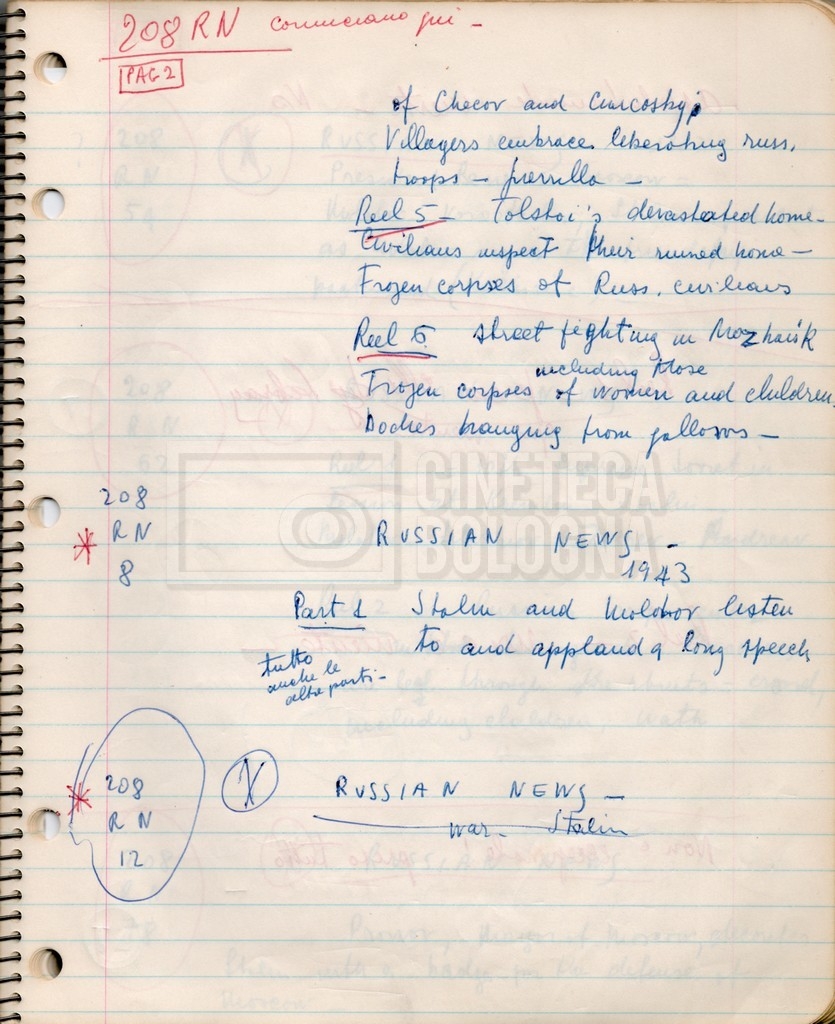 208 RN cominciano qui -
PAG 2
of Checov and Ciarcosky;
Villagers embrace liberating russ.
troops - guerrilla -
Reel 5 - Tolstoi's devasteated home -
Civilians inspect their ruined home -
Frozen corpses of Russ. civilians
Reel 6 street fighting in Mozhaisk
including those
Frozen corpses of women and children.
Bodies hanging from gallows -
208
RN
8
RUSSIAN NEWS -
1943
Part 1 Stalin and Molotov listen
to and applaud a long speech
tutto
anche le
altre parti -
208
RN
12
X
RUSSIAN NEWS -
war - Stalin
CINETECA
BOLOGNA